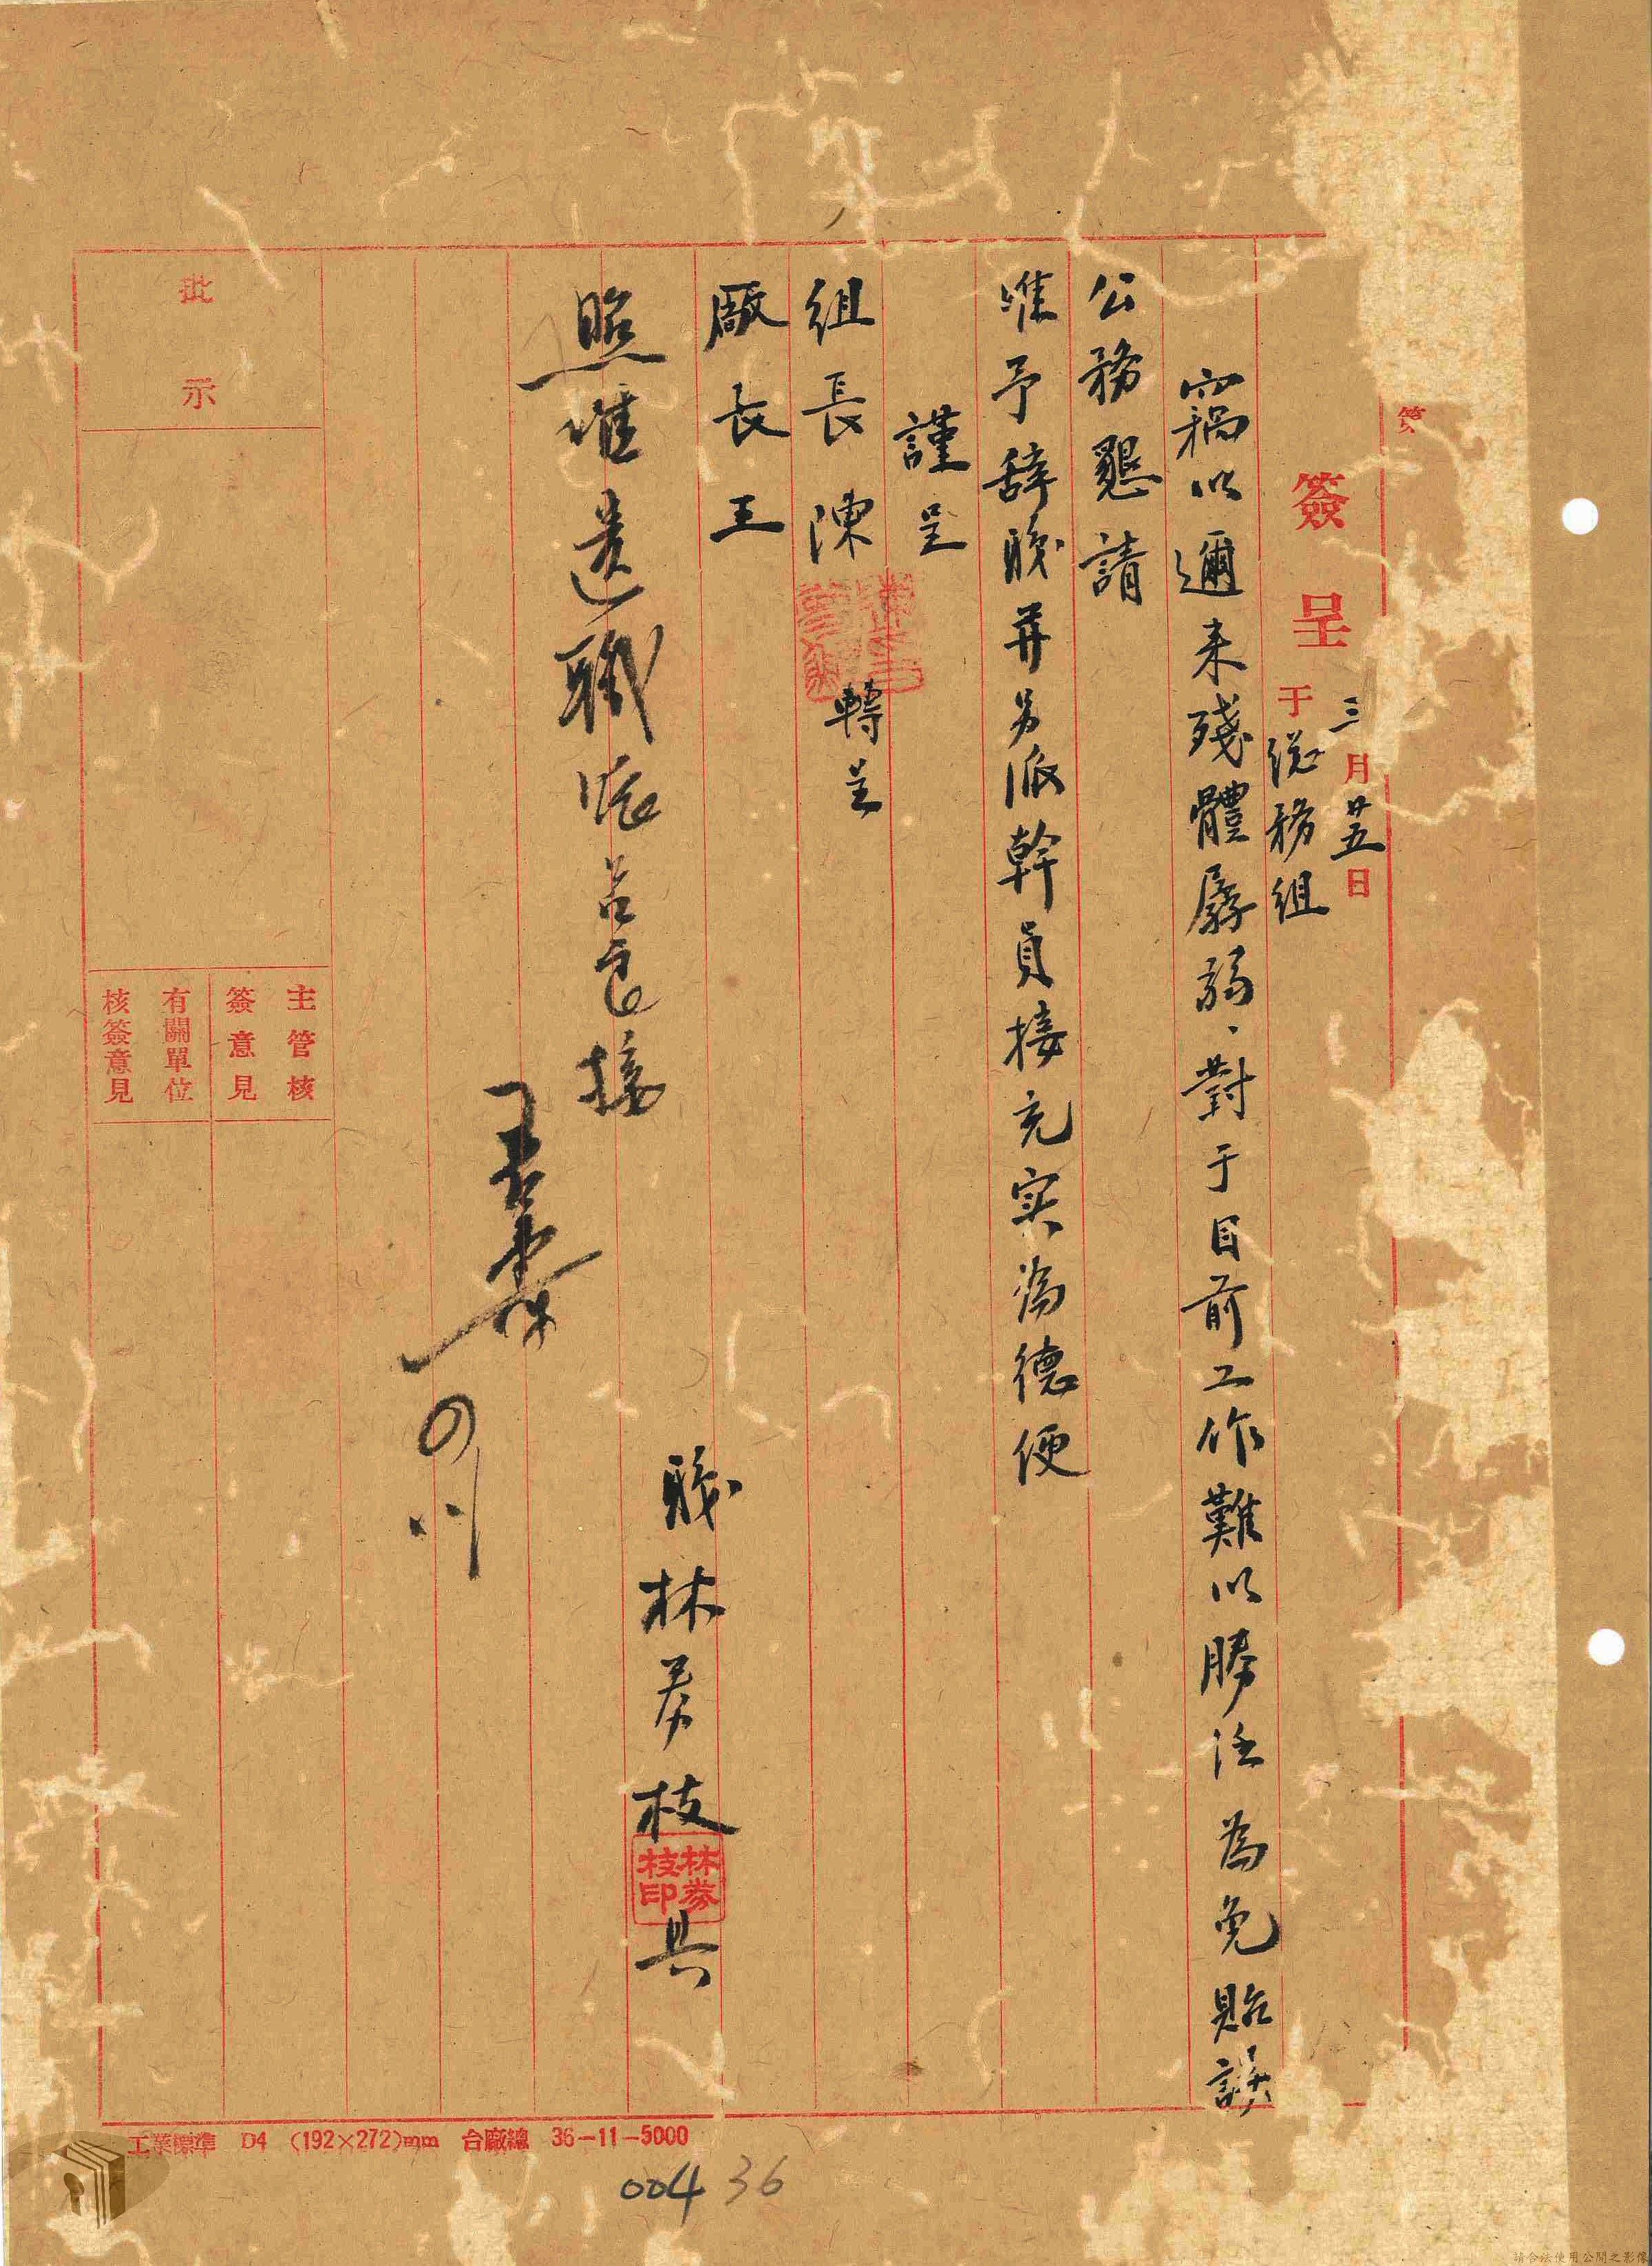 簽呈 三月廿五日
于總務組
竊以邇来殘體孱弱、對于目前工作難以勝任為免貽誤
公務懇請
准予辞职并另派幹員接充实為德便
謹呈
組長陳 轉呈
廠長王
职林券枝具
林劵枝印
照准遗職派呂良接
批示
主管核簽意見
有關單位核簽意見
工業標準 D4 (192×272)mm 台廠總 36-11-5000
004 36
請合法使用公開之影像